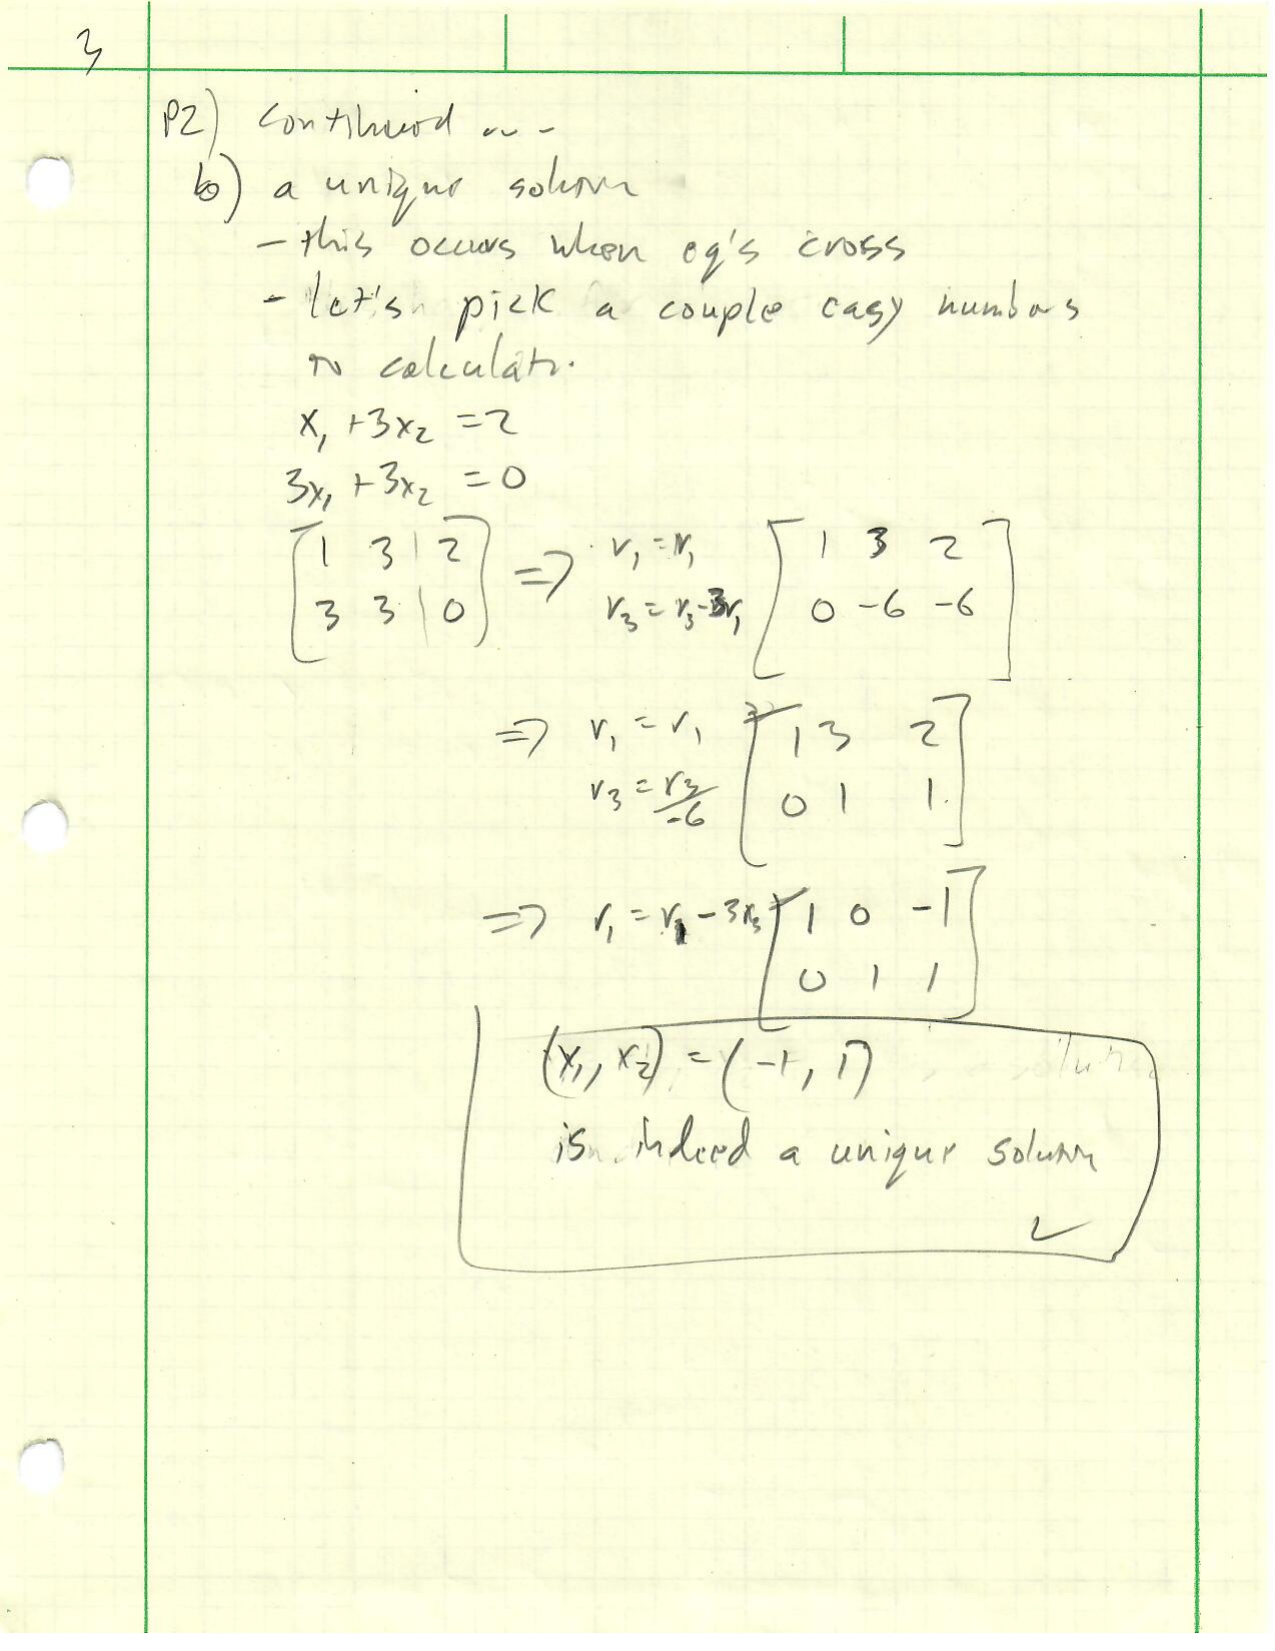 3
P2) continued ...
b) a unique solution
- this occurs when eq's cross
- let's pick a couple easy numbers
to calculate.
x₁ + 3x₂ = 2
3x₁ + 3x₂ = 0
[1 3 | 2] => r₁ = r₁ [1 3 2]
[3 3 | 0] r₃ = r₃ - 3r₁ [0 -6 -6]
=> r₁ = r₁ [1 3 2]
r₃ = r₃/-6 [0 1 1]
=> r₁ = r₁ - 3r₃ [1 0 -1]
[0 1 1]
(x₁, x₂) = (-1, 1)
is indeed a unique solution
✓